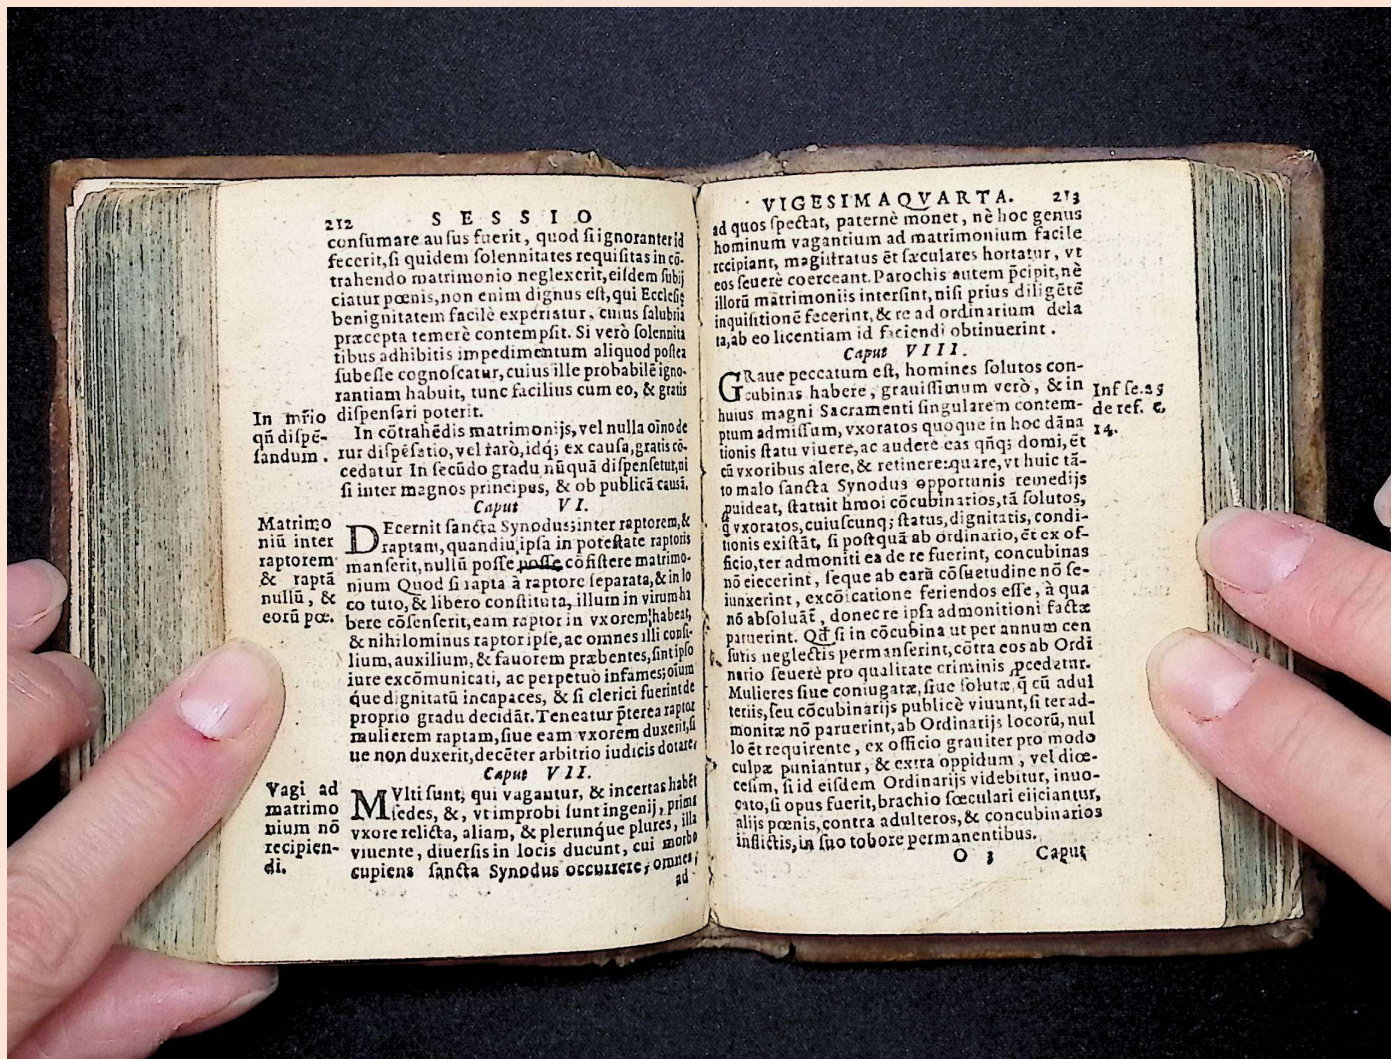 212 SESSIO
consumare ausus fuerit, quod si ignoranter id
fecerit, si quidem solennitates requisitas in cō-
trahendo matrimonio neglexerit, eisdem subij
ciatur pœnis, non enim dignus est, qui Ecclesię
benignitatem facilè experiatur, cuius salubria
præcepta temerè contempsit. Si verò solennita
tibus adhibitis impedimentum aliquod postea
subesse cognoscatur, cuius ille probabilē igno-
rantiam habuit, tunc facilius cum eo, & gratis
dispensari poterit.
In mr̄io
qn̄ dispē-
sandum.
In cōtrahēdis matrimonijs, vel nulla oīno de
tur dispēsatio, vel rarò, idq; ex causa, gratis cō-
cedatur In secūdo gradu nūquā dispensetur, ni
si inter magnos principes, & ob publicā causā.
Caput VI.
Matrimo
niū inter
raptorem
& raptā
nullū, &
eorū pœ.
DEcernit sancta Synodus: inter raptorem, &
raptam, quandiu ipsa in potestate raptoris
manserit, nullū posse posse cōsistere matrimo-
nium Quod si rapta à raptore separata, & in lo
co tuto, & libero constituta, illum in virum ha
bere cōsenserit, eam raptor in vxorem habeat,
& nihilominus raptor ipse, ac omnes illi consi-
lium, auxilium, & fauorem præbentes, sint ipso
iure excōmunicati, ac perpetuò infames, oīum
que dignitatū incapaces, & si clerici fuerint de
proprio gradu decidāt. Teneatur p̄terea raptor
mulierem raptam, siue eam vxorem duxerit, si
ue non duxerit, decēter arbitrio iudicis dotare.
Caput VII.
Vagi ad
matrimo
nium nō
recipien-
di.
MVlti sunt, qui vagantur, & incertas habēt
sedes, &, vt improbi sunt ingenij, prima
vxore relicta, aliam, & plerunque plures, illa
viuente, diuersis in locis ducunt, cui morbo
cupiens sancta Synodus occurrere, omnes,
ad
VIGESIMAQVARTA. 213
ad quos spectat, paternè monet, nè hoc genus
hominum vagantium ad matrimonium facile
recipiant, magistratus ēt sæculares hortatur, vt
eos seuerè coerceant. Parochis autem p̄cipit, nè
illorū matrimoniis intersint, nisi prius diligētē
inquisitionē fecerint, & re ad ordinarium dela
ta, ab eo licentiam id faciendi obtinuerint.
Caput VIII.
GRaue peccatum est, homines solutos con-
cubinas habere, grauissimum verò, & in
huius magni Sacramenti singularem contem-
ptum admissum, vxoratos quoque in hoc dāna
tionis statu viuere, ac audere eas qn̄q; domi, ēt
cū vxoribus alere, & retinere: quare, vt huic tā-
to malo sancta Synodus opportunis remedijs
puideat, statuit hmoi cōcubinarios, tā solutos,
q̄ vxoratos, cuiuscunq; status, dignitatis, condi-
tionis existāt, si postquā ab ordinario, ēt ex of-
ficio, ter admoniti ea de re fuerint, concubinas
nō eiecerint, seque ab earū cōsuetudine nō se-
iunxerint, excōicatione feriendos esse, à qua
nō absoluāt, donec re ipsa admonitioni factæ
paruerint. Qd̄ si in cōcubina ut per annum cen
suris neglectis permanserint, cōtra eos ab Ordi
nario seuerè pro qualitate criminis pcedatur.
Mulieres siue coniugatæ, siue solutæ, q̄ cū adul
teriis, seu cōcubinarijs publicè viuunt, si ter ad-
monitæ nō paruerint, ab Ordinarijs locorū, nul
lo ēt requirente, ex officio grauiter pro modo
culpæ puniantur, & extra oppidum, vel diœ-
cesim, si id eisdem Ordinarijs videbitur, inuo-
cato, si opus fuerit, brachio sœculari eijciantur,
alijs pœnis, contra adulteros, & concubinarios
inflictis, in suo robore permanentibus.
O 3 Caput
Inf se. 25
de ref. c.
14.